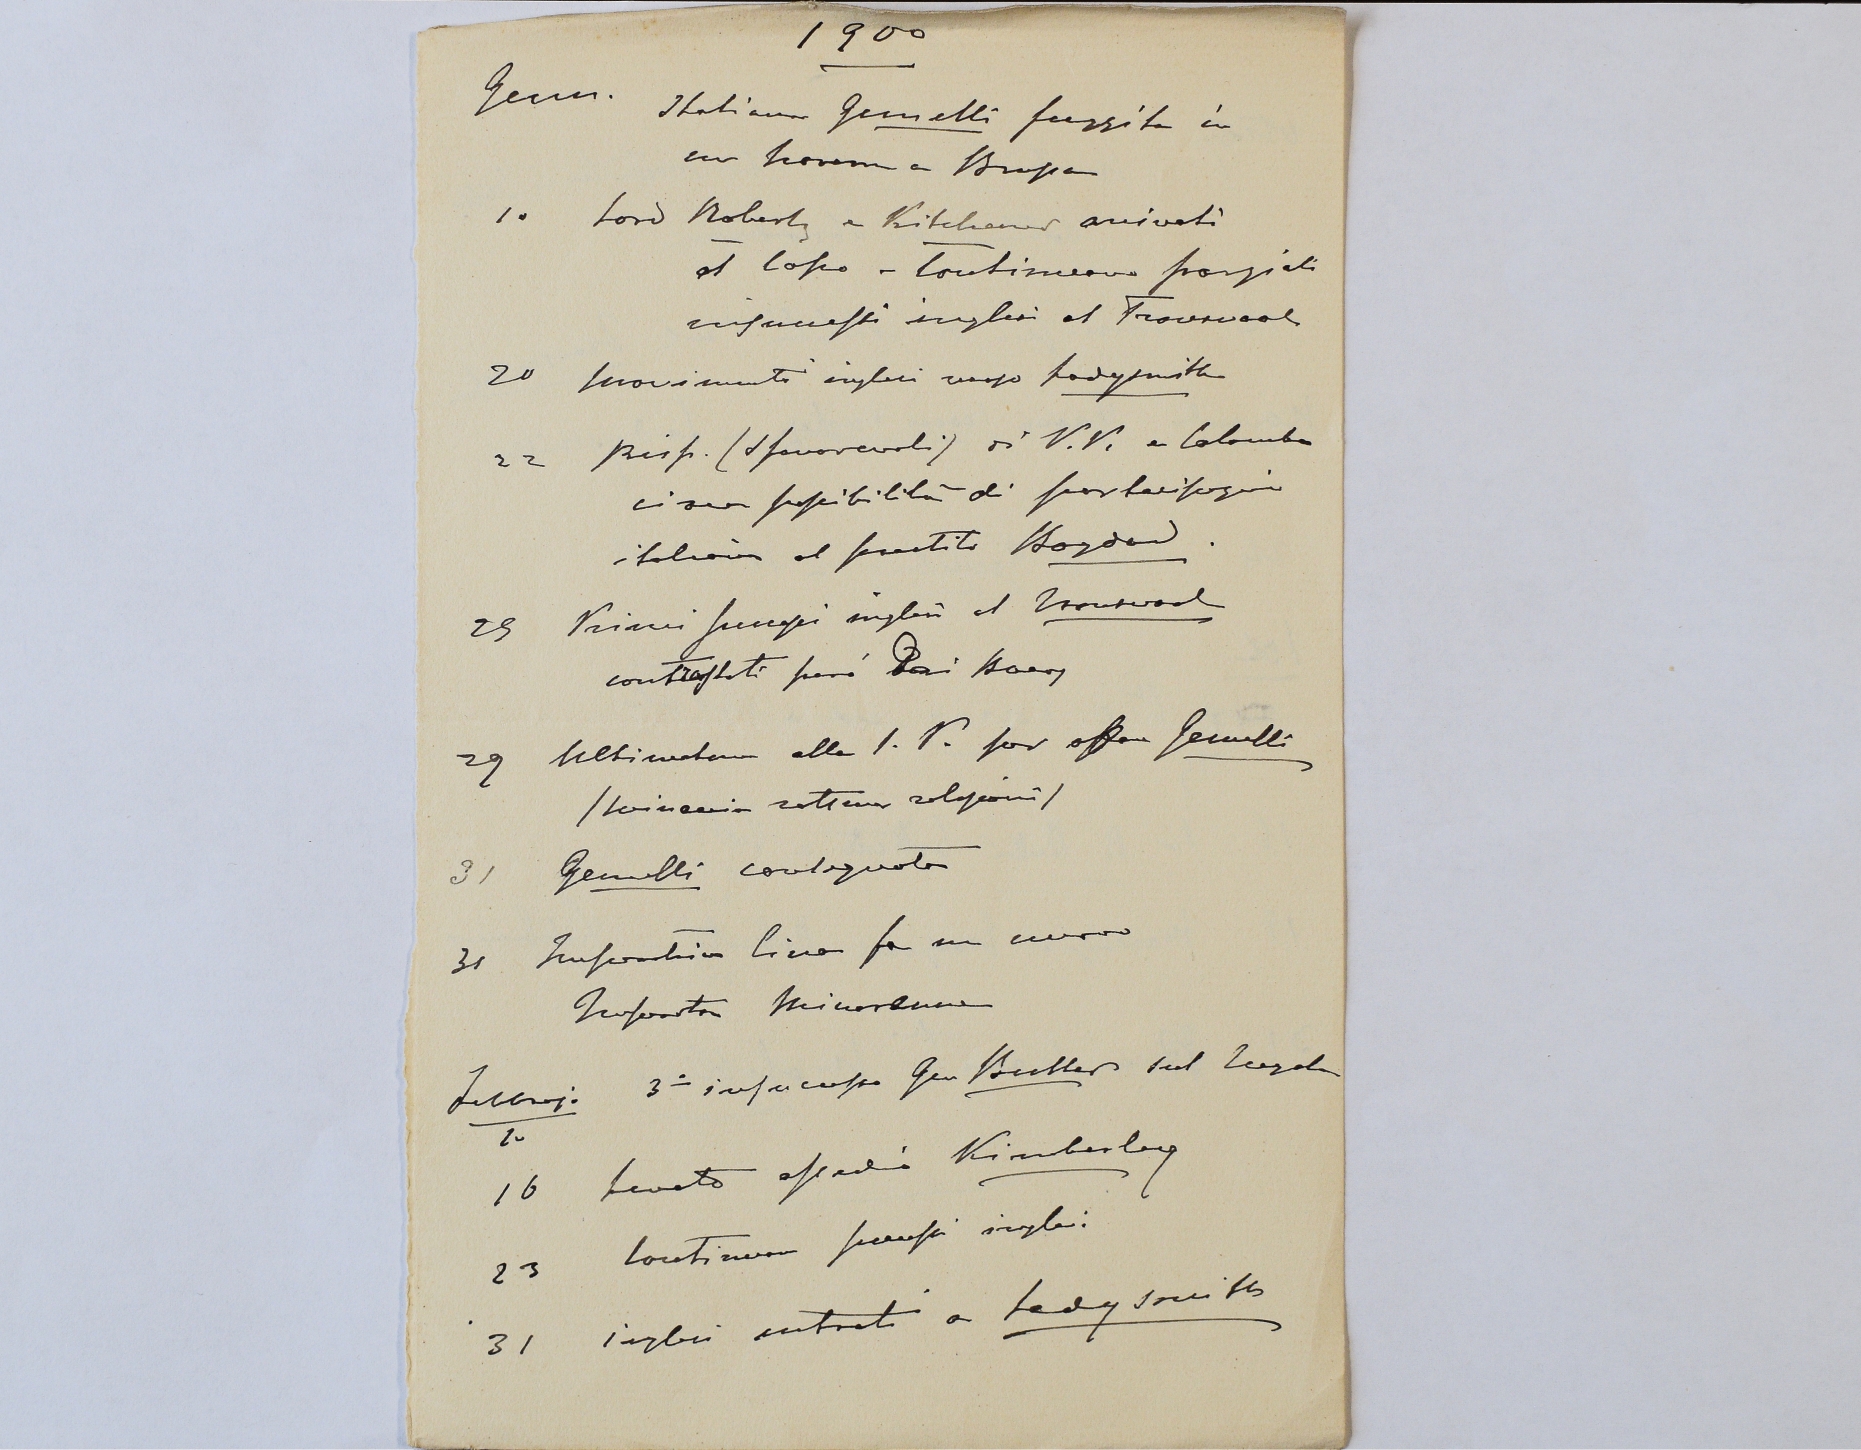 1900
Genn. Italiana Gemelli fuggita in
un harem a Brussa
10 Lord Roberts e Kitchener arrivati
al Capo - Continuano parziali
insuccessi inglesi al Transwaal
20 Movimenti inglesi verso Ladysmith
22 Risp. (Sfavorevoli) di V.V. e Colombo
circa possibilità di partecipazione
italiana al prestito Bagdad.
25 Primi successi inglesi al Transwaal
contrastati però dai Boers
29 Ultimatum alla S. P. per affare Gemelli
(minaccia rottura relazioni)
31 Gemelli consegnata
31 Imperatrice Cina fa un nuovo
Imperatore Minorenne
Febbraio 3º insuccesso Gen Buller sul Tugela
10
16 Levato assedio Kimberley
23 Continuano successi inglesi
31 inglesi entrati a Ladysmith